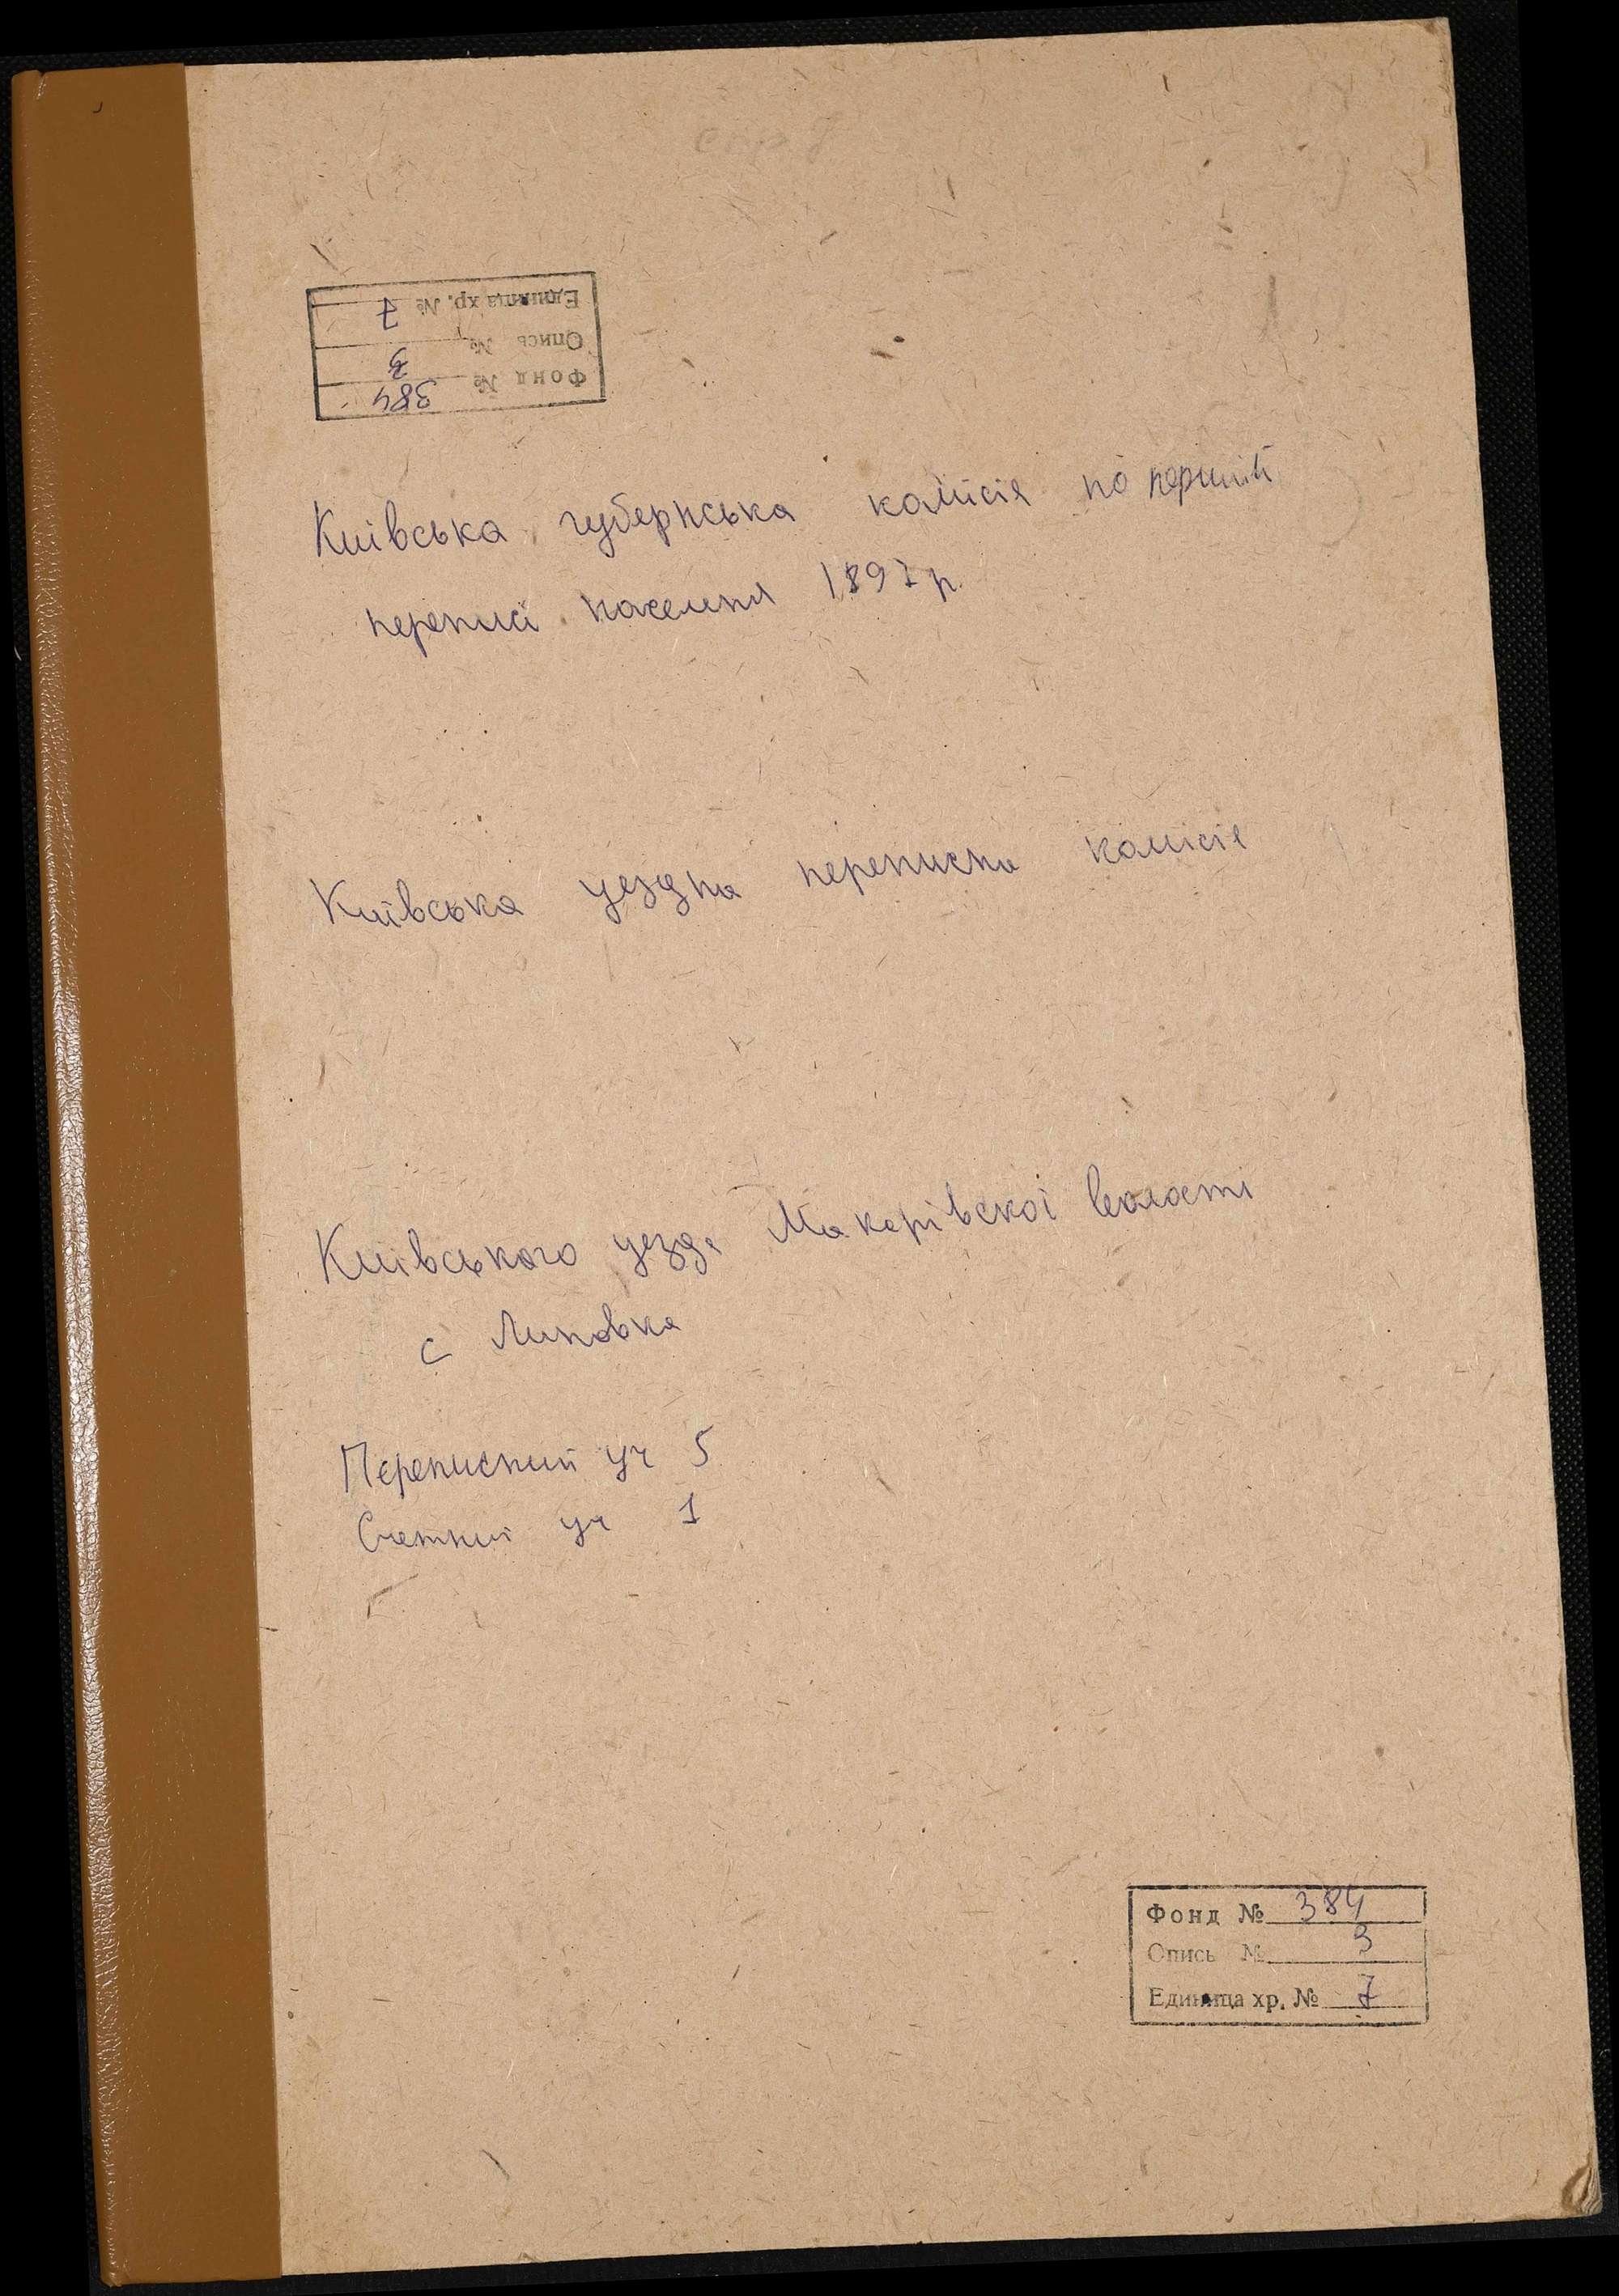 Единица хр. № 7
Опись № 3
Фонд № 384
Київська губернська комісія по першій
переписі населення 1897 р.
Київська уездна переписна комісія
Київського уезда Макарівскої волості
с Липовка
Переписний уч 5
Счетний уч 1
Фонд № 384
Опись № 3
Единица хр. № 7